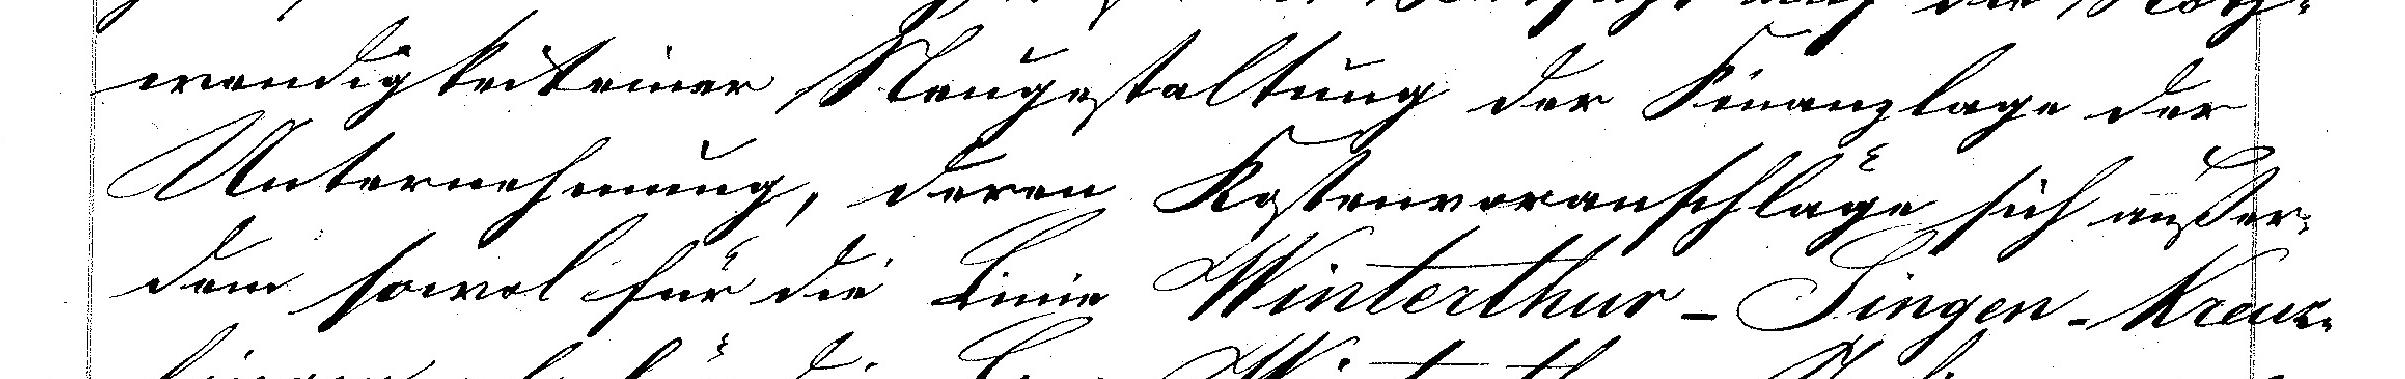 wendigkeit einer Neugestaltung der Finanzlage der
Unternehmung, deren Kostenvoranschläge sich außer-
dem sowol für die Linie Winterthur - Singen - Kreuz-